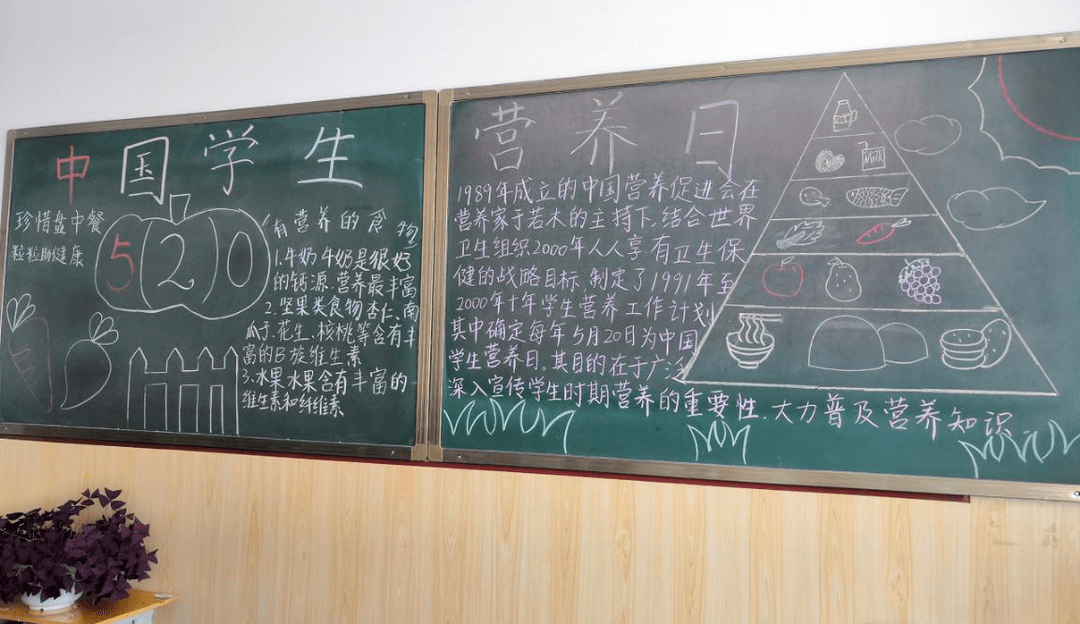 中国学生
营养日
珍惜盘中餐
粒粒助健康
520
有营养的食物
1.牛奶 牛奶是很好
的钙源.营养最丰富
2.坚果类食物 杏仁、南
瓜子.花生、核桃等含有丰
富的B族维生素
3、水果 水果含有丰富的
维生素和纤维素
1989年成立的中国营养促进会在
营养家于若木的主持下,结合世界
卫生组织2000年人人享有卫生保
健的战略目标,制定了1991年至
2000年十年学生营养工作计划
其中确定每年5月20日为中国
学生营养日.其目的在于广泛
深入宣传学生时期营养的重要性.大力普及营养知识.
MILK